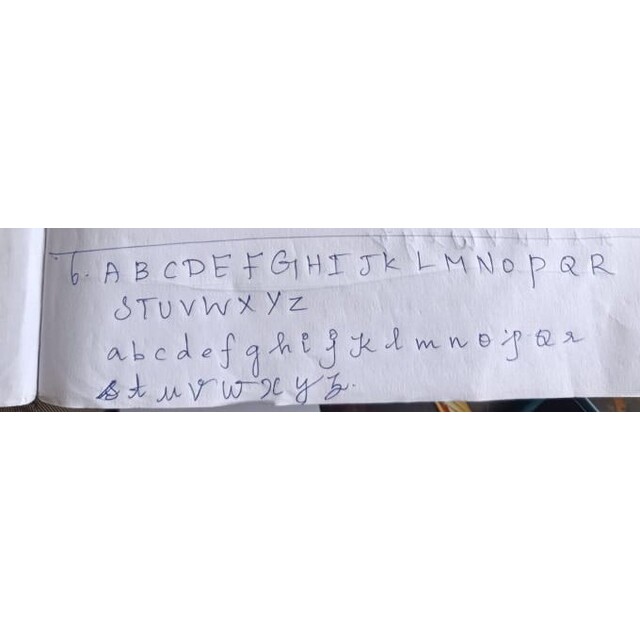 6. A B C D E F G H I J K L M N O P Q R
S T U V W X Y Z
a b c d e f g h i j k l m n o p Q r
s t u v w x y z.